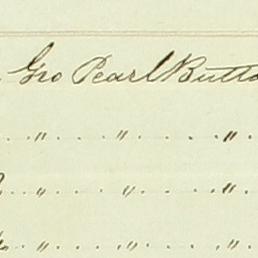 Gro Pearl Butto
" " "
" " "
" " "